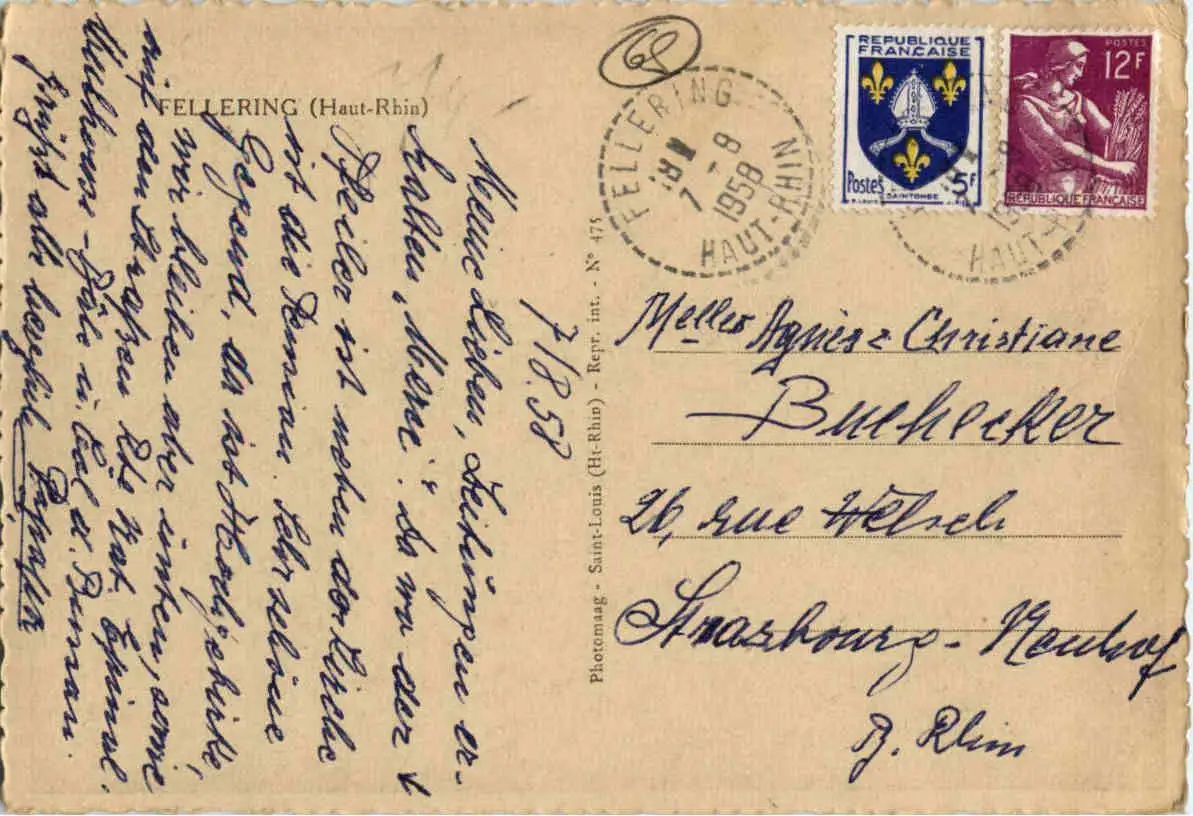 FELLERING (Haut-Rhin)
7/8.58
Meine Lieben, Zeitungen er-
halten, Merci. Da wo der +
Pfeiler ist neben der Kirche
ist die Pension. Sehr schöne
Gegend, da ist
wir bleiben aber unten, sowie
mit den Strassen Rte Nat. Epinal-
Mulhouse-Bâle u. Col d. Bussan.
grüsst alle herzlich
Photomaag - Saint-Louis (Ht-Rhin) - Repr. int. - N° 475
68
FELLERING
18 H
7 - 8
1958
HAUT-RHIN
REPUBLIQUE
FRANÇAISE
Postes
5F
SAINTONGE
POSTES
12F
REPUBLIQUE FRANÇAISE
HAUT-
Melles Agnès & Christiane
Buchecker
26, rue Welsch
Strasbourg - Neuhof
B. Rhin